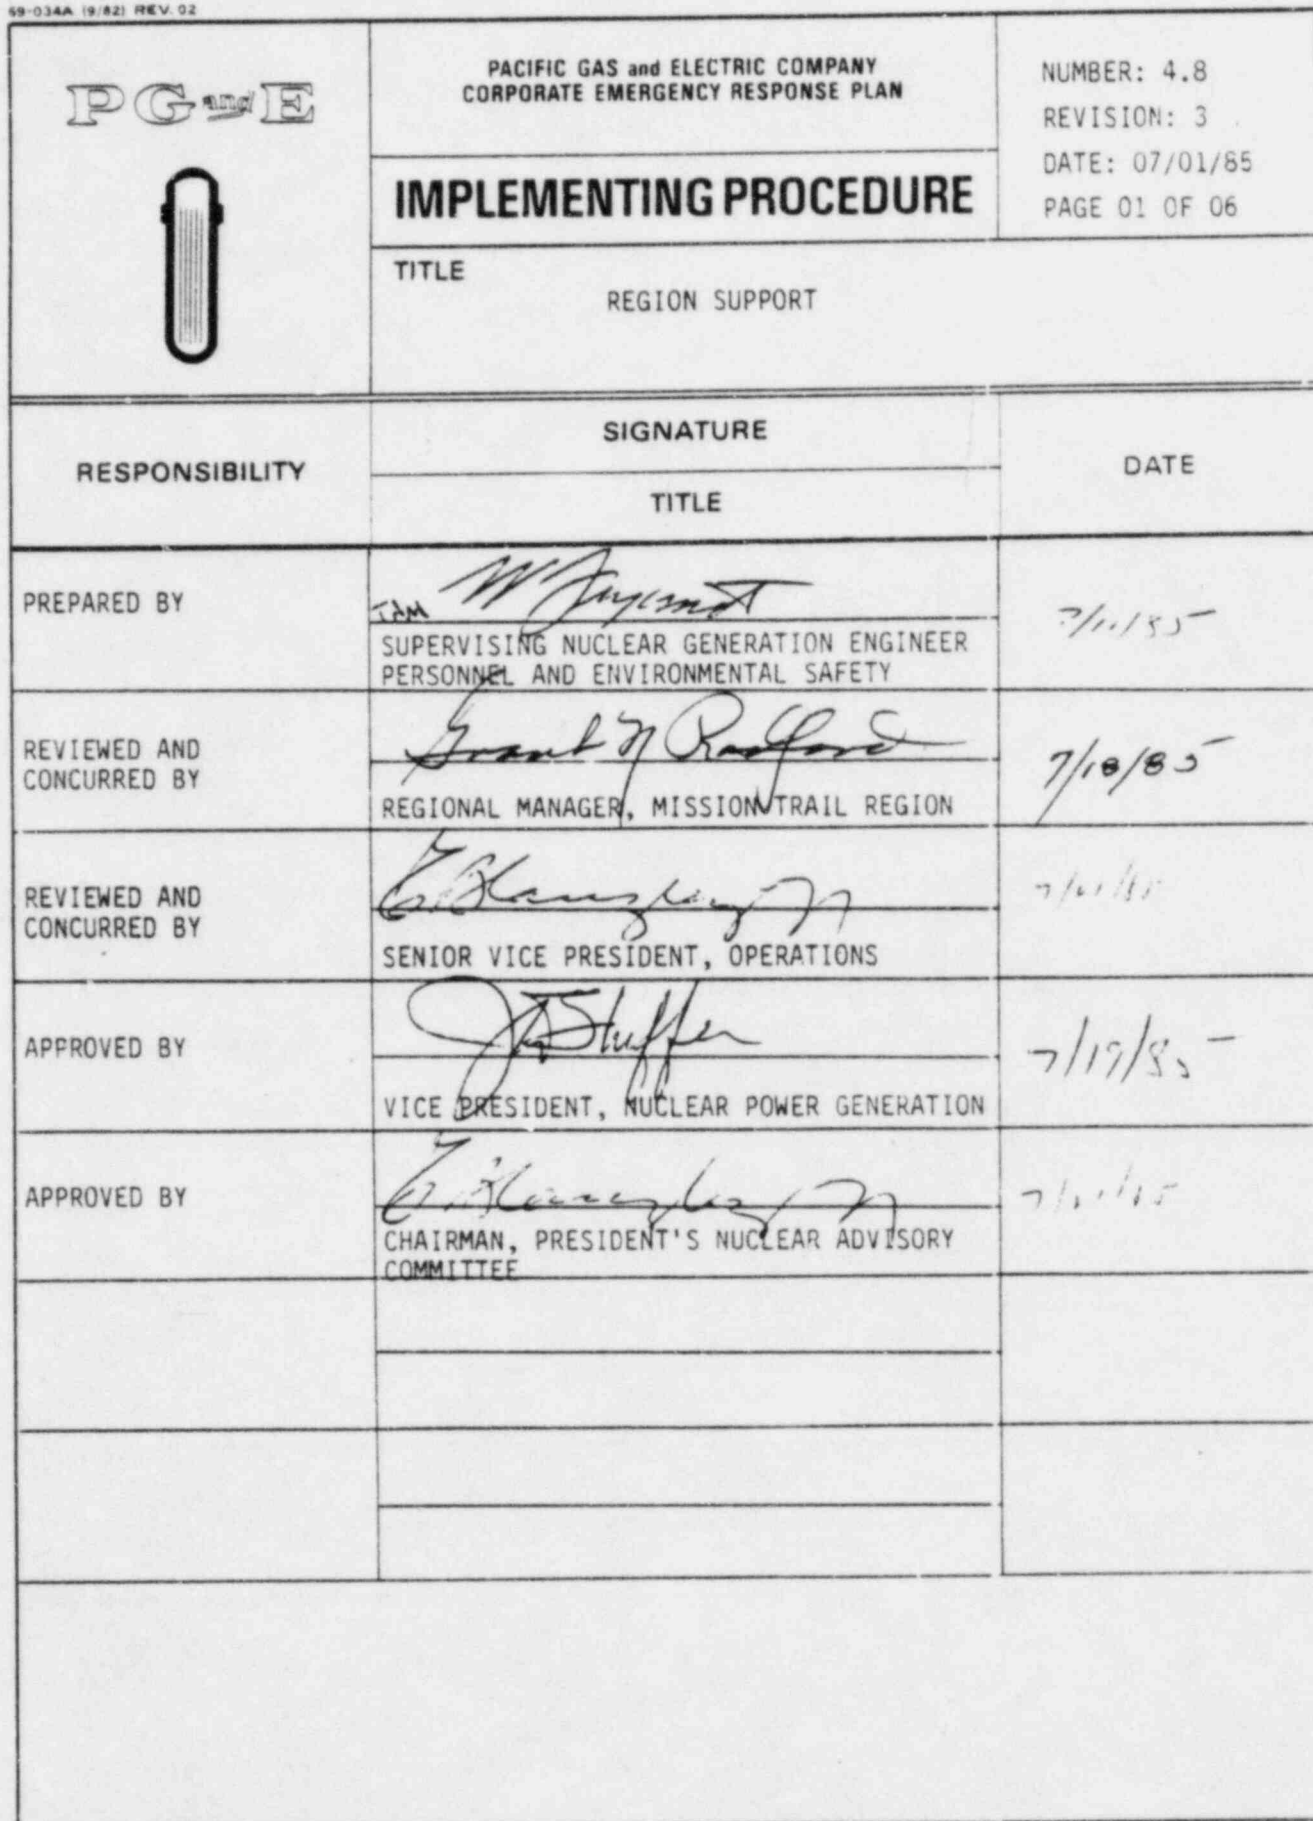 69-034A (9/82) REV. 02
PG and E
PACIFIC GAS and ELECTRIC COMPANY
CORPORATE EMERGENCY RESPONSE PLAN
IMPLEMENTING PROCEDURE
NUMBER: 4.8
REVISION: 3
DATE: 07/01/85
PAGE 01 OF 06
TITLE
REGION SUPPORT
RESPONSIBILITY
SIGNATURE
TITLE
DATE
PREPARED BY
SUPERVISING NUCLEAR GENERATION ENGINEER
PERSONNEL AND ENVIRONMENTAL SAFETY
REVIEWED AND
CONCURRED BY
Grant N Radford
REGIONAL MANAGER, MISSION TRAIL REGION
7/18/85
REVIEWED AND
CONCURRED BY
SENIOR VICE PRESIDENT, OPERATIONS
APPROVED BY
VICE PRESIDENT, NUCLEAR POWER GENERATION
7/19/85
APPROVED BY
CHAIRMAN, PRESIDENT'S NUCLEAR ADVISORY
COMMITTEE